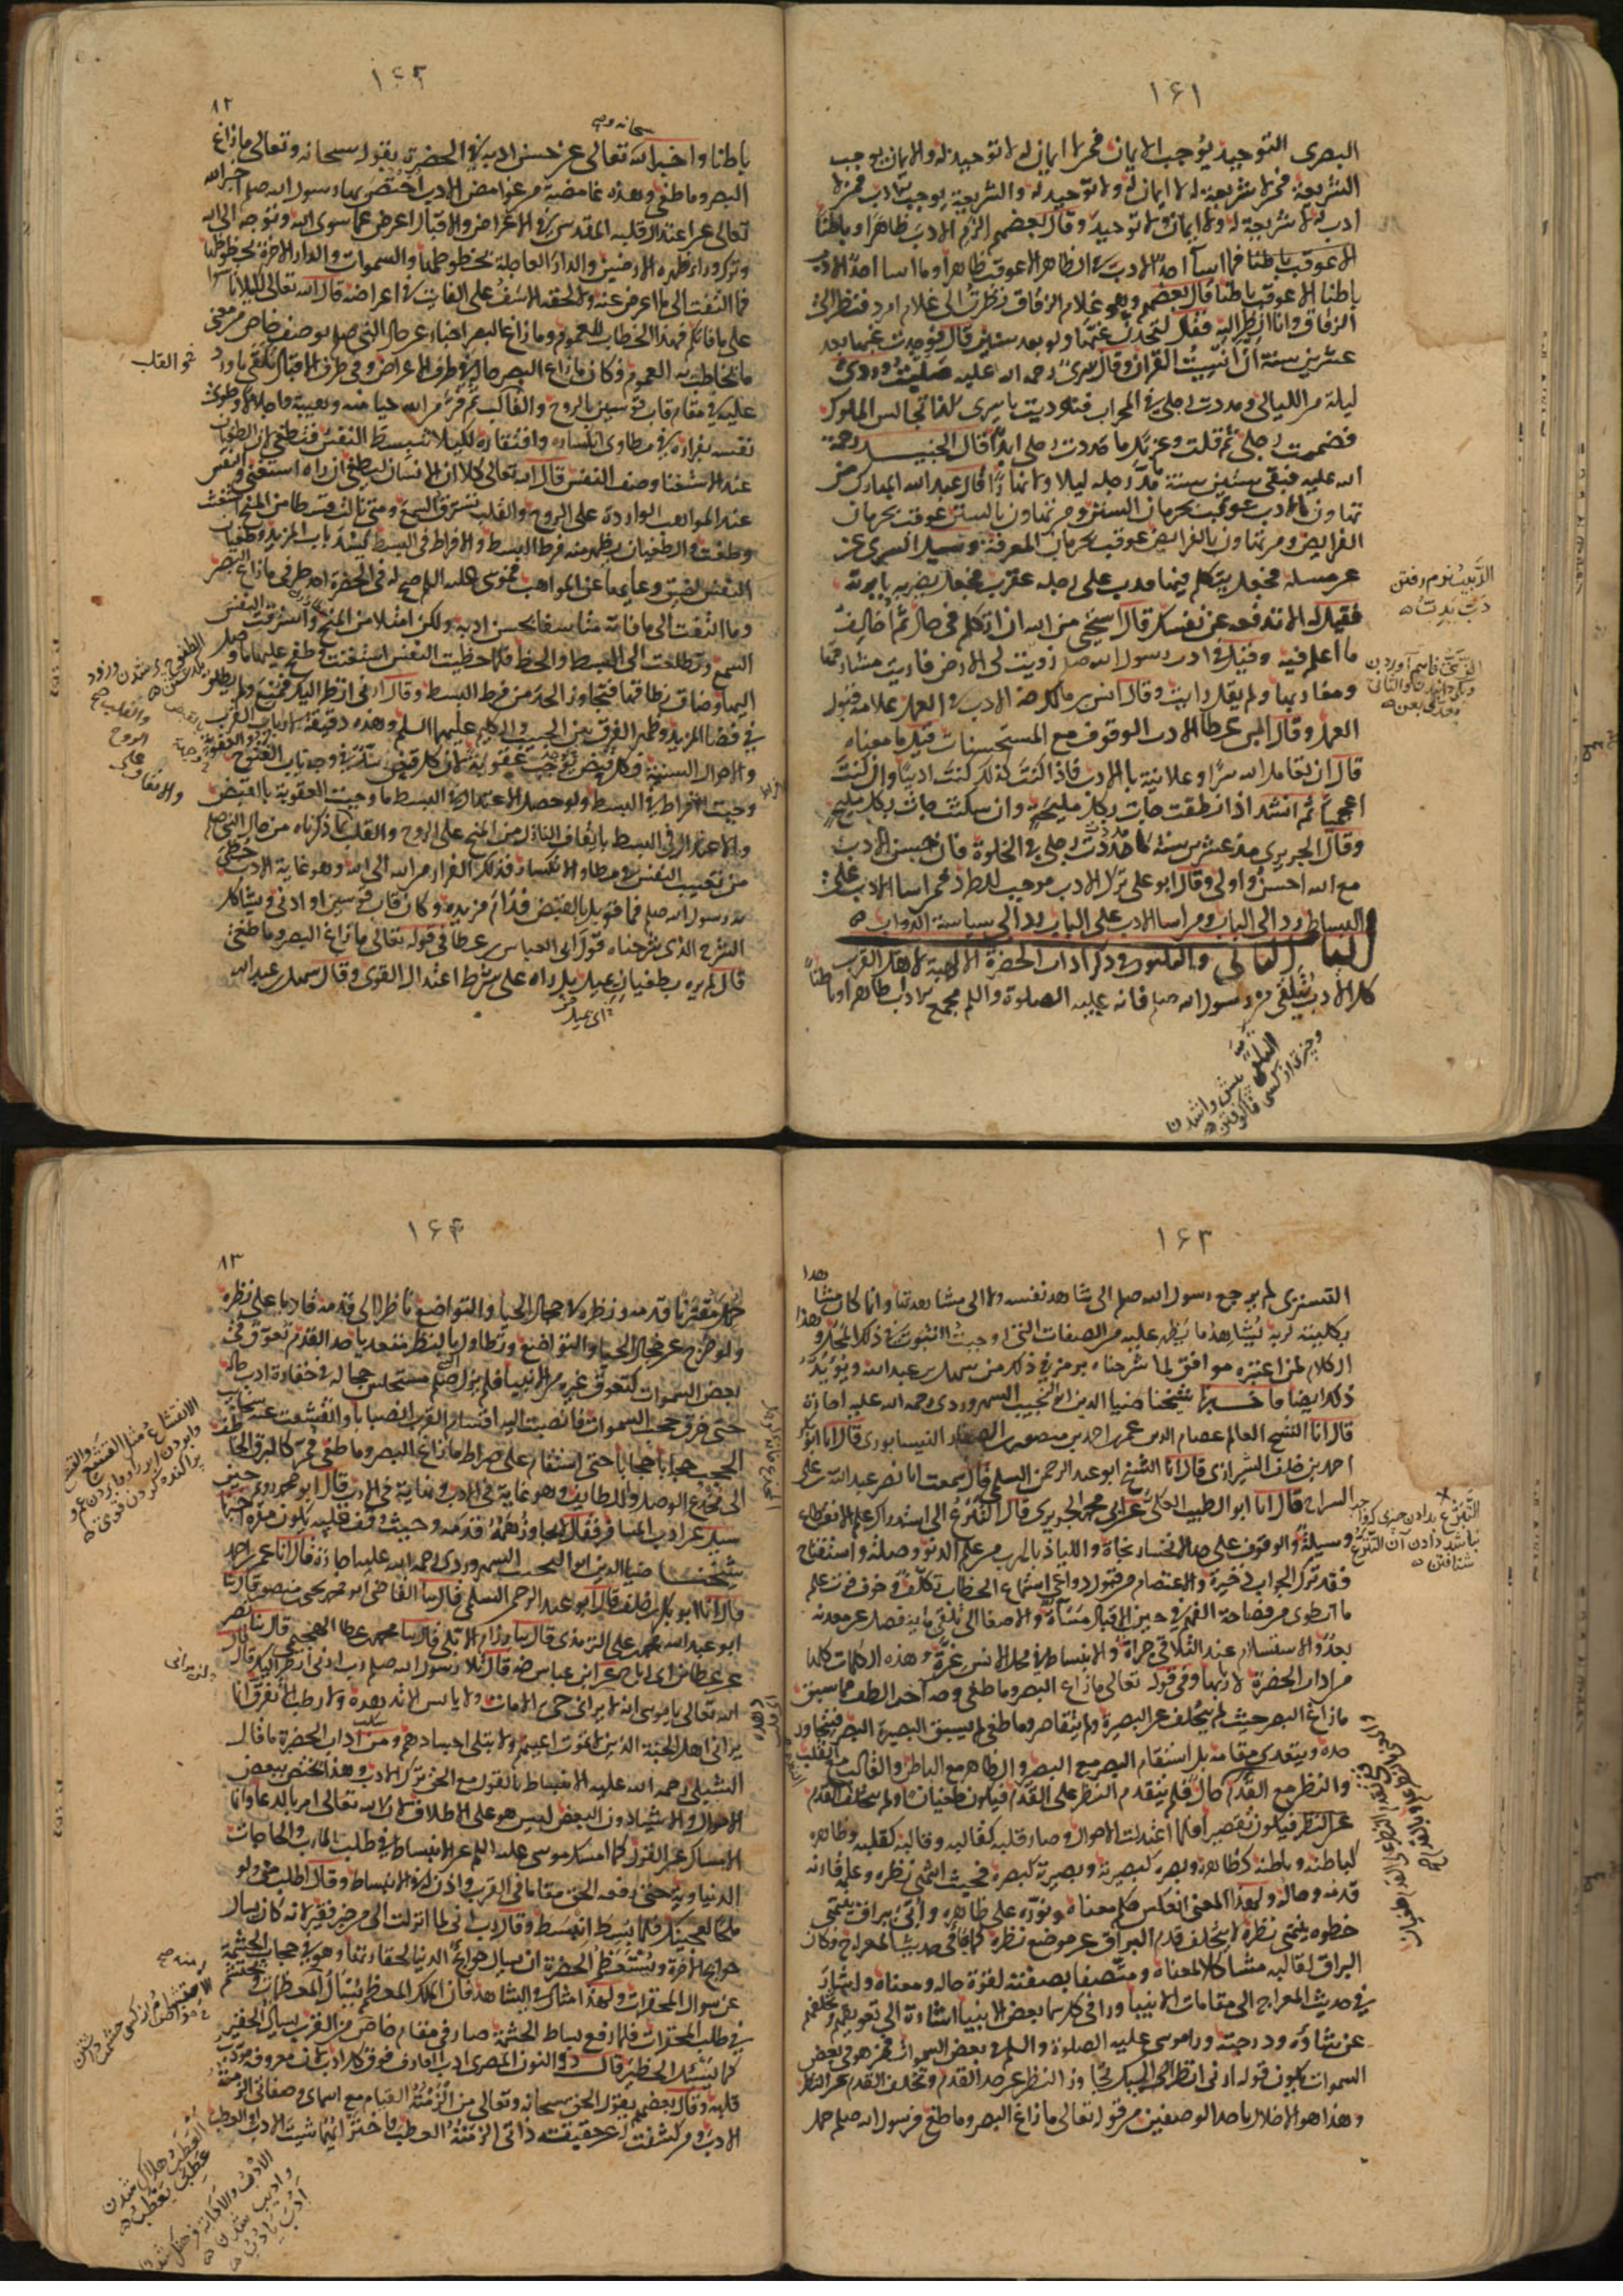 ١٦١
البصرى التوحيد يوجب الايمان فمن لا ايمان له لا توحيد له والايمان يوجب
الشريعة فمن لا شريعة له لا ايمان له ولا توحيد له والشريعة يوجب الادب فمن لا
ادب له لا شريعة له ولا ايمان ولا توحيد وقال بعضهم الزم الادب ظاهرا وباطنا
الا عوقب باطنا فما اسآ احد الادب فى الظاهر الا عوقب ظاهرا وما اسا احد الادب
باطنا الا عوقب باطنا قال بعضهم وهو غلام الزقاق نظرت الى غلام امرد فنظر الىّ
الزقاق وانا انظر اليه فقال لتجدن غبّها ولو بعد سنين قال فوجدت غبها بعد
عشرين سنة ان انسيت القران وقال سرى رحمه الله عليه صليت وردى
ليلة من الليالى ومددت رجلى فى المحراب فنوديت يا سرى كذا تجالس الملوك
فضممت رجلى ثم قلت وعزتك ما مددت رجلى ابدا قال الجنيد رحمة
الله عليه فبقى ستين سنة ما مد رجله ليلا ولا نهارا قال عبد الله المبارك من
تهاون بالادب عوقب بحرمان السنن ومن تهاون بالسنن عوقب بحرمان
الفرايض ومن تهاون بالفرايض عوقب بحرمان المعرفة وسيل السرى عن
عن مسلة فجعل يتكلم فيها فدب على رجله عقرب فجعل يضربه بابرته
فقيل له الا تدفعه عن نفسك قال استحيى من الله ان اتكلم فى حال ثم اخالف
ما اعلم فيه وقيل من ادب رسول الله صلم زويت لى الارض فاريت مشارقها
ومغاربها ولم يقل رايت وقال انس بن مالك رضه الادب فى العمل علامة قبول
العمل وقال ابن عطا الادب الوقوف مع المستحسنات قيل ما معناه
قال ان تعامل الله سرا وعلانية بالادب فاذا كنت كذلك كنت اديبا وان كنت
اعجميا ثم انشد اذا نطقت جات بكل مليحة وان سكتت جات بكل مليح
وقال الجريرى منذ عشرين سنة ما مددت رجلى فى الخلوة فان حسن الادب
مع الله احسن واولى وقال ابو على ترك الادب موجب للطرد فمن اسا الادب على
البساط رد الى الباب ومن اسا الادب على الباب رد الى سياسة الدواب
الباب الثانى والثلثون فى ذكر اداب الحضرة الالهية لاهل القرب
كل الادب يتلقى من رسول الله صلم فانه عليه الصلوة والسلم مجمع الاداب ظاهرا وباطنا
الدبيب نرم رفتن
١٦٢
٨٢
سبحانه
باطنا واخبر الله تعالى عن حسن ادبه فى الحضرة بقوله سبحانه وتعالى ما زاغ
البصر وما طغى وهذه غامضة من غوامض الادب اختص بها رسول الله صلم اخبر الله
تعالى عن اعتدال قلبه المقدس فى الاعراض والاقبال اعرض عما سوى الله وتوجه الى الله
وترك وراء ظهره الارضين والدار العاجلة بحظوظها والسموات والدار الاخرة بحظوظها
فما التفت الى ما اعرض عنه ولا لحقه الاسف على الفايت فى اعراضه قال الله تعالى لكيلا تاسوا
على ما فاتكم فهذا الخطاب للعموم وما زاغ البصر اخبار عن حال النبى صلم بوصف خاص من معنى
ما خاطب به العموم فكان ما زاغ البصر حاله فى طرف الاعراض وفى طرف الاقبال تلقى ما ورد
عليه فى مقام قاب قوسين بالروح والقالب ثم فر من الله حيا منه وهيبة واجلالا وطوى
نفسه بفراره فى مطاوى انكساره وافتقاره لكيلا تنبسط النفس فتطغى فان الطغيان
عند الاستغنا وصف النفس قال الله تعالى كلا ان الانسان ليطغى ان راه استغنى والنفس
عند المواهب الواردة على الروح والقلب تسترق السمع ومتى نالت قسطا من المنح استغنت
وطغت والطغيان يظهر منه فرط البسط والافراط فى البسط يسد باب المزيد وطغيان
النفس لضيق وعايها عن المواهب فموسى عليه السلم صح له فى الحضرة احد طرفى ما زاغ البصر
وما التفت الى ما فاته متاسفا لحسن ادبه ولكن امتلا من المنح واسترقت النفس
السمع وتطلعت الى القسط والحظ فلما حظيت النفس استغنت وطفح عليها ما وصل
اليها وضاق نطاقها فتجاوز الحد من فرط البسط وقال ارنى انظر اليك فمنع ولم يطلق
فى فضا المزيد وظهر الفرق بين الحبيب والكليم عليهما السلم وهذه دقيقة لارباب القرب
والاحوال السنية فكل قبض يوجب عقوبة لان كل قبض سد فى وجه باب الفتوح
وجبت الافراط فى البسط ولو حصل الاعتدال فى البسط ما وجبت العقوبة بالقبض
والاعتدال فى البسط بايقاف النازل من المنح على الروح والقلب بما ذكرناه من حال النبى صلم
من تغييب النفس فى مطاوى الانكسار فذلك الفرار من الله الى الله وهو غاية الادب حظى
به رسول الله صلم فما قوبل بالقبض فدام مزيده وكان قاب قوسين او ادنى ويشاكل
الشرح الذى شرحناه قول ابى العباس بن عطا فى قوله تعالى ما زاغ البصر وما طغى
قال لم يره بطغيان يميل بل راه على شرط اعتدال القوى وقال سهل بن عبد الله
نحو القلب
١٦٣
هذا
التسترى لم يرجع رسول الله صلم الى شاهد نفسه ولا الى مشاهدتها وانما كان مشاهدا
بكليته لربه يشاهد ما يظهر عليه من الصفات التى اوجبت الثبوت فى ذلك المحل وهذا
الكلام لمن اعتبره موافق لما شرحناه برمز فى ذلك من سهل بن عبد الله ويؤيد
ذلك ايضا ما اخبرنا شيخنا ضيا الدين ابو النجيب السهروردى رحمه الله عليه اجازة
قال انا الشيخ العالم عصام الدين عمر بن احمد بن منصور الصفار النيسابورى قال انا ابو بكر
احمد بن خلف الشيرازى قال انا الشيخ ابو عبد الرحمن السلمى قال سمعت ابا نصر عبد الله بن على
السراج قال انا ابو الطيب العكى عن ابى محمد الجريرى قال التسرع الى استدراك علم الانقطاع
وسيلة والوقوف على حد الانحسار نجاة واللياذ بالهرب من علم الدنو وصلة واستقباح
فقد ترك الجواب ذخيرة والاعتصام من قبول دواعى استماع الخطاب تكلف وخوف فوت علم
ما انطوى من فصاحة الفهم فى حين الاقبال مساة والاصغا الى تلقى ما ينفصل عن معدنه
بعد والاستسلام عند التلاقى جراة والانبساط فى محل الانس غرة وهذه الكلمات كلها
من اداب الحضرة لاربابها وفى قوله تعالى ما زاغ البصر وما طغى وجه آخر الطف مما سبق
ما زاغ البصر حيث لم يتخلف عن البصيرة ولم يتقاصر وما طغى لم يسبق البصر البصيرة فيتجاوز
حده ويتعدى مقامه بل استقام البصر مع البصيرة والظاهر مع الباطن والقالب مع القلب
والنظر مع القدم كان فلم يتقدم النظر على القدم فيكون طغيانا ولم يتخلف القدم
عن النظر فيكون تقصيرا فلما اعتدلت الاحوال وصار قلبه كقالبه وقالبه كقلبه وظاهره
كباطنه وباطنه كظاهره وبصره كبصيرته وبصيرته كبصره فحيث انتهى نظره وعلمه قارنه
قدمه وحاله ولهذا المعنى انعكس حكم معناه ونوره على ظاهره واتى ببراق ينتهى
خطوه ينتهى نظره لا يتخلف قدم البراق عن موضع نظره كما جا فى حديث المعراج وكان
البراق لقالبه مشاكلا لمعناه ومتصفا بصفته لقوة حاله ومعناه واشار
فى حديث المعراج الى مقامات الانبيا وراى فى كل سما بعض الانبيا اشارة الى تعويقهم وتخلفهم
عن شاوه ودرجته وراى موسى عليه الصلوة والسلم فى بعض السموات فمن هو فى بعض
السموات يكون قوله ارنى انظر اليك تجاوز النظر عن حد القدم وتخلف القدم عن النظر
وهذا هو الاخلال باحد الوصفين من قوله تعالى ما زاغ البصر وما طغى فرسول الله صلم حمل
١٦٤
٨٣
حمل مقترنا قدمه ونظره فى حجال الحيا والتواضع ناظرا الى قدمه قادما على نظره
ولو خرج عن حجال الحيا والتواضع وتطاول بالنظر متعديا حد القدم تعوق فى
بعض السموات كتعوق غيره من الانبيا فلم يزل صلم متجلبس حجاله فى خفارة ادب حاله
حتى خرق حجب السموات فانصبت اليه اقسام القرب انصبابا وانقشعت عنه سحايب
الحجب حجابا حجابا حتى استقام على صراط ما زاغ البصر وما طغى فمر كالبرق الخاطف
الى مخدع الوصل واللطايف وهو غاية فى الادب ونهاية فى الارب قال ابو محمد رويم حين
سيل عن ادب المسافر فقال لا يجاوز همه قدمه وحيث وقف قلبه يكون مقره اخبرنا
شيخنا ضيا الدين ابو النجيب السهروردى رحمه الله عليه اجازة قال انا عمر بن احمد
قال انا ابو بكر بن خلف قال انا ابو عبد الرحمن السلمى قال سا القاضى ابو محمد يحيى بن منصور قال ثنا
ابو عبد الله محمد بن على الترمذى قال سا محمد بن رزام الابلى قال سا محمد بن عطا الهجيمى قال ثنا محمد بن نصر
عن عطا بن ابى رباح عن ابن عباس رضه قال تلا رسول الله صلم رب ارنى انظر اليك قال
الله تعالى يا موسى انه لا يرانى حى الا مات ولا يابس الا تدهده ولا رطب الا تفرق انما
يرانى اهل الجنة الذين لا تموت اعينهم ولا يبلى اجسادهم ومن اداب الحضرة ما قال
الشبلى رحمه الله عليه الانبساط بالقول مع الحق ترك الادب وهذا يختص ببعض
الاحوال والاشيا دون البعض ليس هو على الاطلاق لان الله تعالى امر بالدعا وانما
الامساك عن القول كما امسك موسى عليه السلم عن الانبساط فى طلب المارب والحاجات
الدنياوية حتى رفعه الحق مقاما فى القرب واذن له فى الانبساط وقال اطلب منى ولو
ملحا لعجينك فلما بسط انبسط وقال رب انى لما انزلت الى من خير فقير لانه كان يسال
حوايج الاخرة ويستعظم الحضرة ان يسال حوايج الدنيا لحقارتها وهو فى حجاب الحشمة
عن سوال المحقرات ولهذا مثال فى الشاهد فان الملك المعظم يسال المعظمات ويحتشم
فى طلب المحقرات فلما رفع بساط الحشمة صار فى مقام خاص من القرب يسال الحقير
كما يسئل الخطير قال ذو النون المصرى ادب العارف فوق كل ادب لان معروفه مودب
قلبه وقال بعضهم يقول الحق سبحانه وتعالى من الزمته القيام مع اسماى وصفاتى الزمته
الادب ومن كشفت له عن حقيقة ذاتى الزمته العطب فاختر ايهما شيت الادب او العطب
العطب هلاك شدن
عطب يعطب